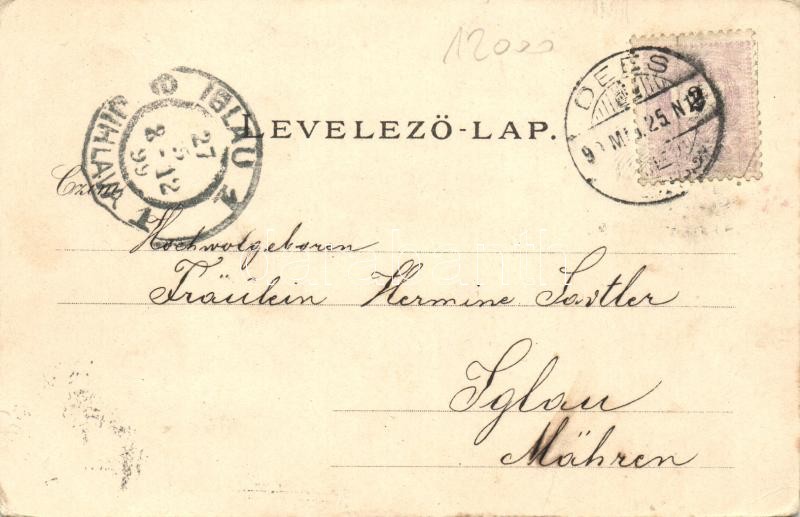 12000
DEÉS
LEVELEZŐ-LAP.
IGLAU
JIHLAVA
27
5
8-12
99
1
Czím
Hochwolgeboren
Fräulein Hermine Sattler
Iglau
Mähren